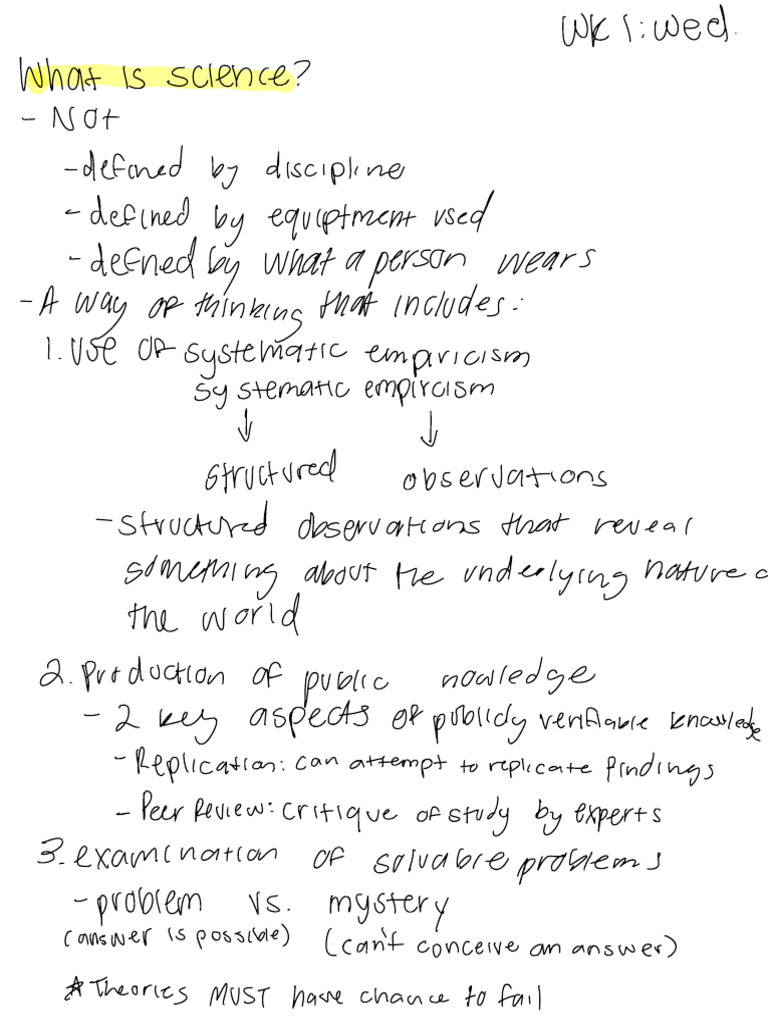 WK 1: wed.
What is science?
- Not
- defined by discipline
- defined by equiptment used
- defined by what a person wears
- A way of thinking that includes:
1. Use of systematic empiricism
systematic empircism
↓ ↓
structured observations
- structured observations that reveal
something about the underlying nature o
the world
2. Production of public nowledge
- 2 key aspects of publicly verifiable knowledge
- Replication: can attempt to replicate findings
- Peer Review: critique of study by experts
3. examination of solvable problems
- problem vs. mystery
(answer is possible) (can't conceive an answer)
* Theories MUST have chance to fail